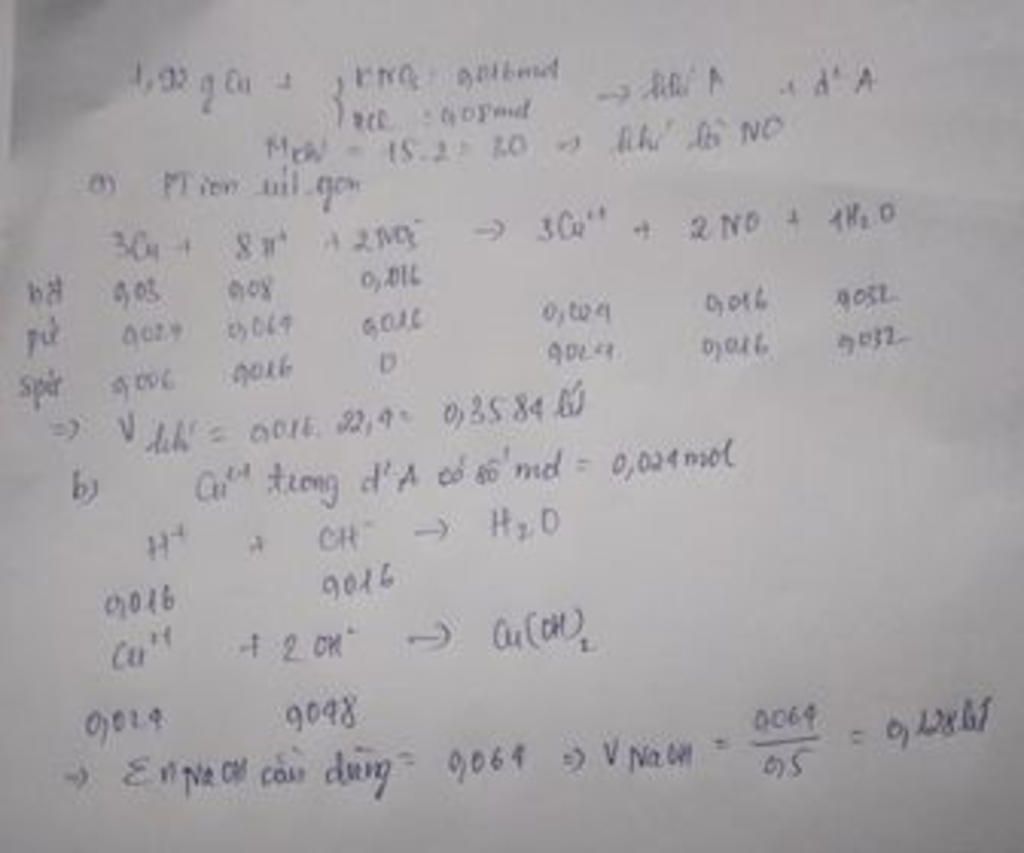 1,92 g Cu + { KNO3 : 0,016 mol → khí A + d² A
HCl : 0,08 mol
Mkhí = 15.2 = 30 => khí là NO
a) PT ion rút gọn
3Cu + 8H⁺ + 2NO3⁻ → 3Cu²⁺ + 2NO + 4H2O
bđ 0,03 0,08 0,016
pứ 0,024 0,064 0,016 0,024 0,016 0,032
spứ 0,006 0,016 0 0,024 0,016 0,032
=> V khí = 0,016. 22,4 = 0,3584 lít
b) Cu²⁺ trong d² A có số mol = 0,024 mol
H⁺ + OH⁻ → H2O
0,016 0,016
Cu²⁺ + 2OH⁻ → Cu(OH)2
0,024 0,048
=> Σ n NaOH cần dùng = 0,064 => V NaOH = 0,064 / 0,5 = 0,128 lít